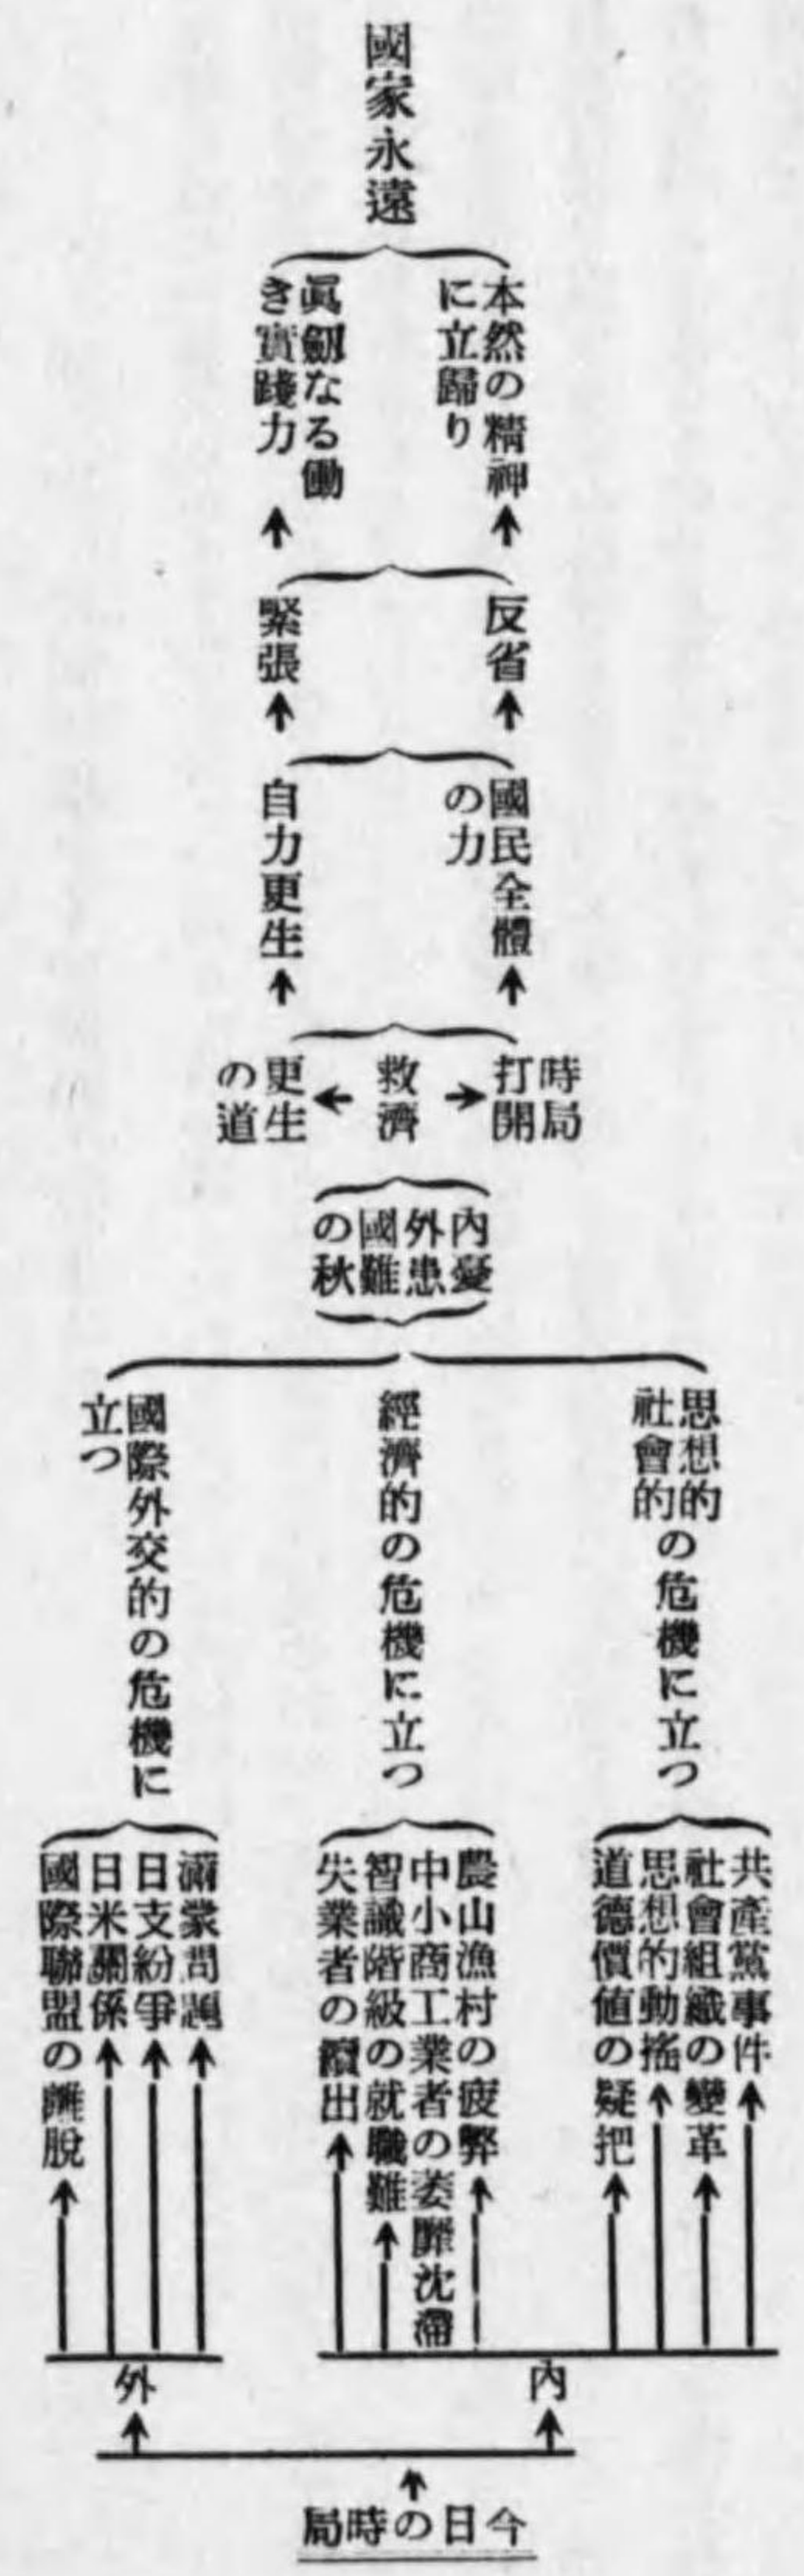 國家永遠
本然の精神
に立歸り
眞劔なる働
き實踐力
反省
緊張
國民全體
の力
自力更生
時局
打開
救濟
更生
の道
內憂
外患
國難
の秋
思想的
社會的
の危機に立つ
經濟的の危機に立つ
國際外交的の危機に
立つ
共產黨事件
社會組織の變革
思想的動搖
道德價値の疑把
農山漁村の疲弊
中小商工業者の萎靡沈滯
智識階級の就職難
失業者の續出
滿蒙問題
日支紛爭
日米關係
國際聯盟の離脫
內
外
今日の時局